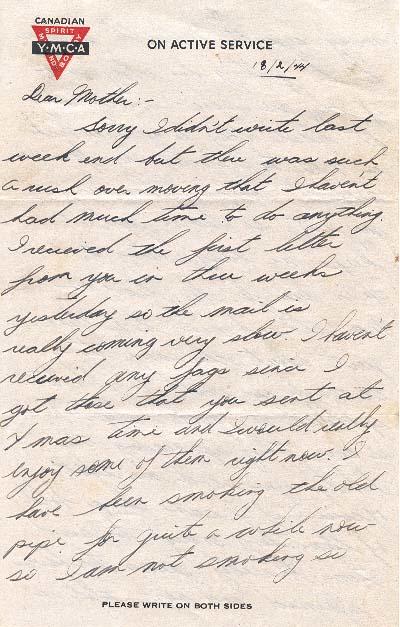 CANADIAN
SPIRIT
MIND
BODY
Y·M·C·A
ON ACTIVE SERVICE
18/2/44
Dear Mother:-
Sorry I didn't write last
week end but there was such
a rush over moving that I haven't
had much time to do anything.
I received the first letter
from you in three weeks
yesterday so the mail is
really coming very slow. I haven't
received any fags since I
got those that you sent at
Xmas time and I would really
enjoy some of them right now. I
have been smoking the old
pipe for quite a while now
so I am not smoking so
PLEASE WRITE ON BOTH SIDES